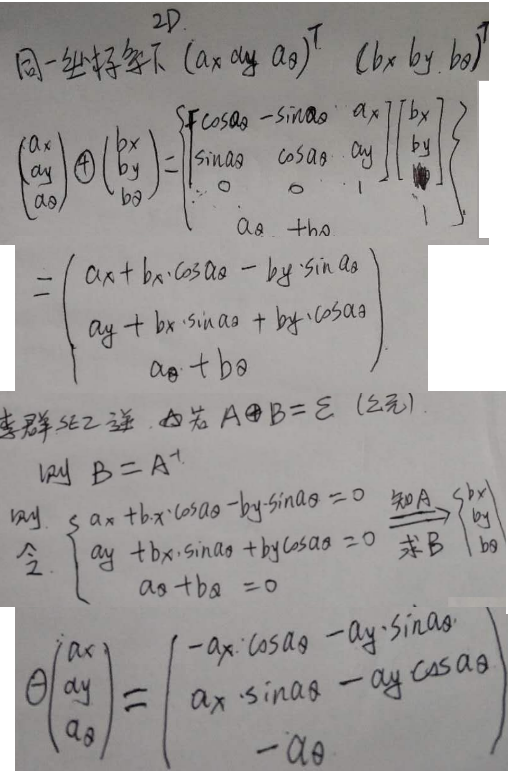 2D
同一坐标系下 (ax ay aθ)ᵀ (bx by bθ)ᵀ
(ax ay aθ) ⊕ (bx by bθ) = { [cosaθ -sinaθ ax
sinaθ cosaθ ay
0 0 1] [bx by 1]
aθ + bθ }
= ( ax + bx·cosaθ - by·sinaθ
ay + bx·sinaθ + by·cosaθ
aθ + bθ )
李群SE2逆 若 A⊕B = ε (幺元).
则 B = A⁻¹
则 令 { ax + bx·cosaθ - by·sinaθ = 0
ay + bx·sinaθ + bycosaθ = 0 知A 求B ⇒ { bx by bθ
aθ + bθ = 0
⊖ (ax ay aθ) = ( -ax·cosaθ - ay·sinaθ
ax·sinaθ - ay cosaθ
-aθ )